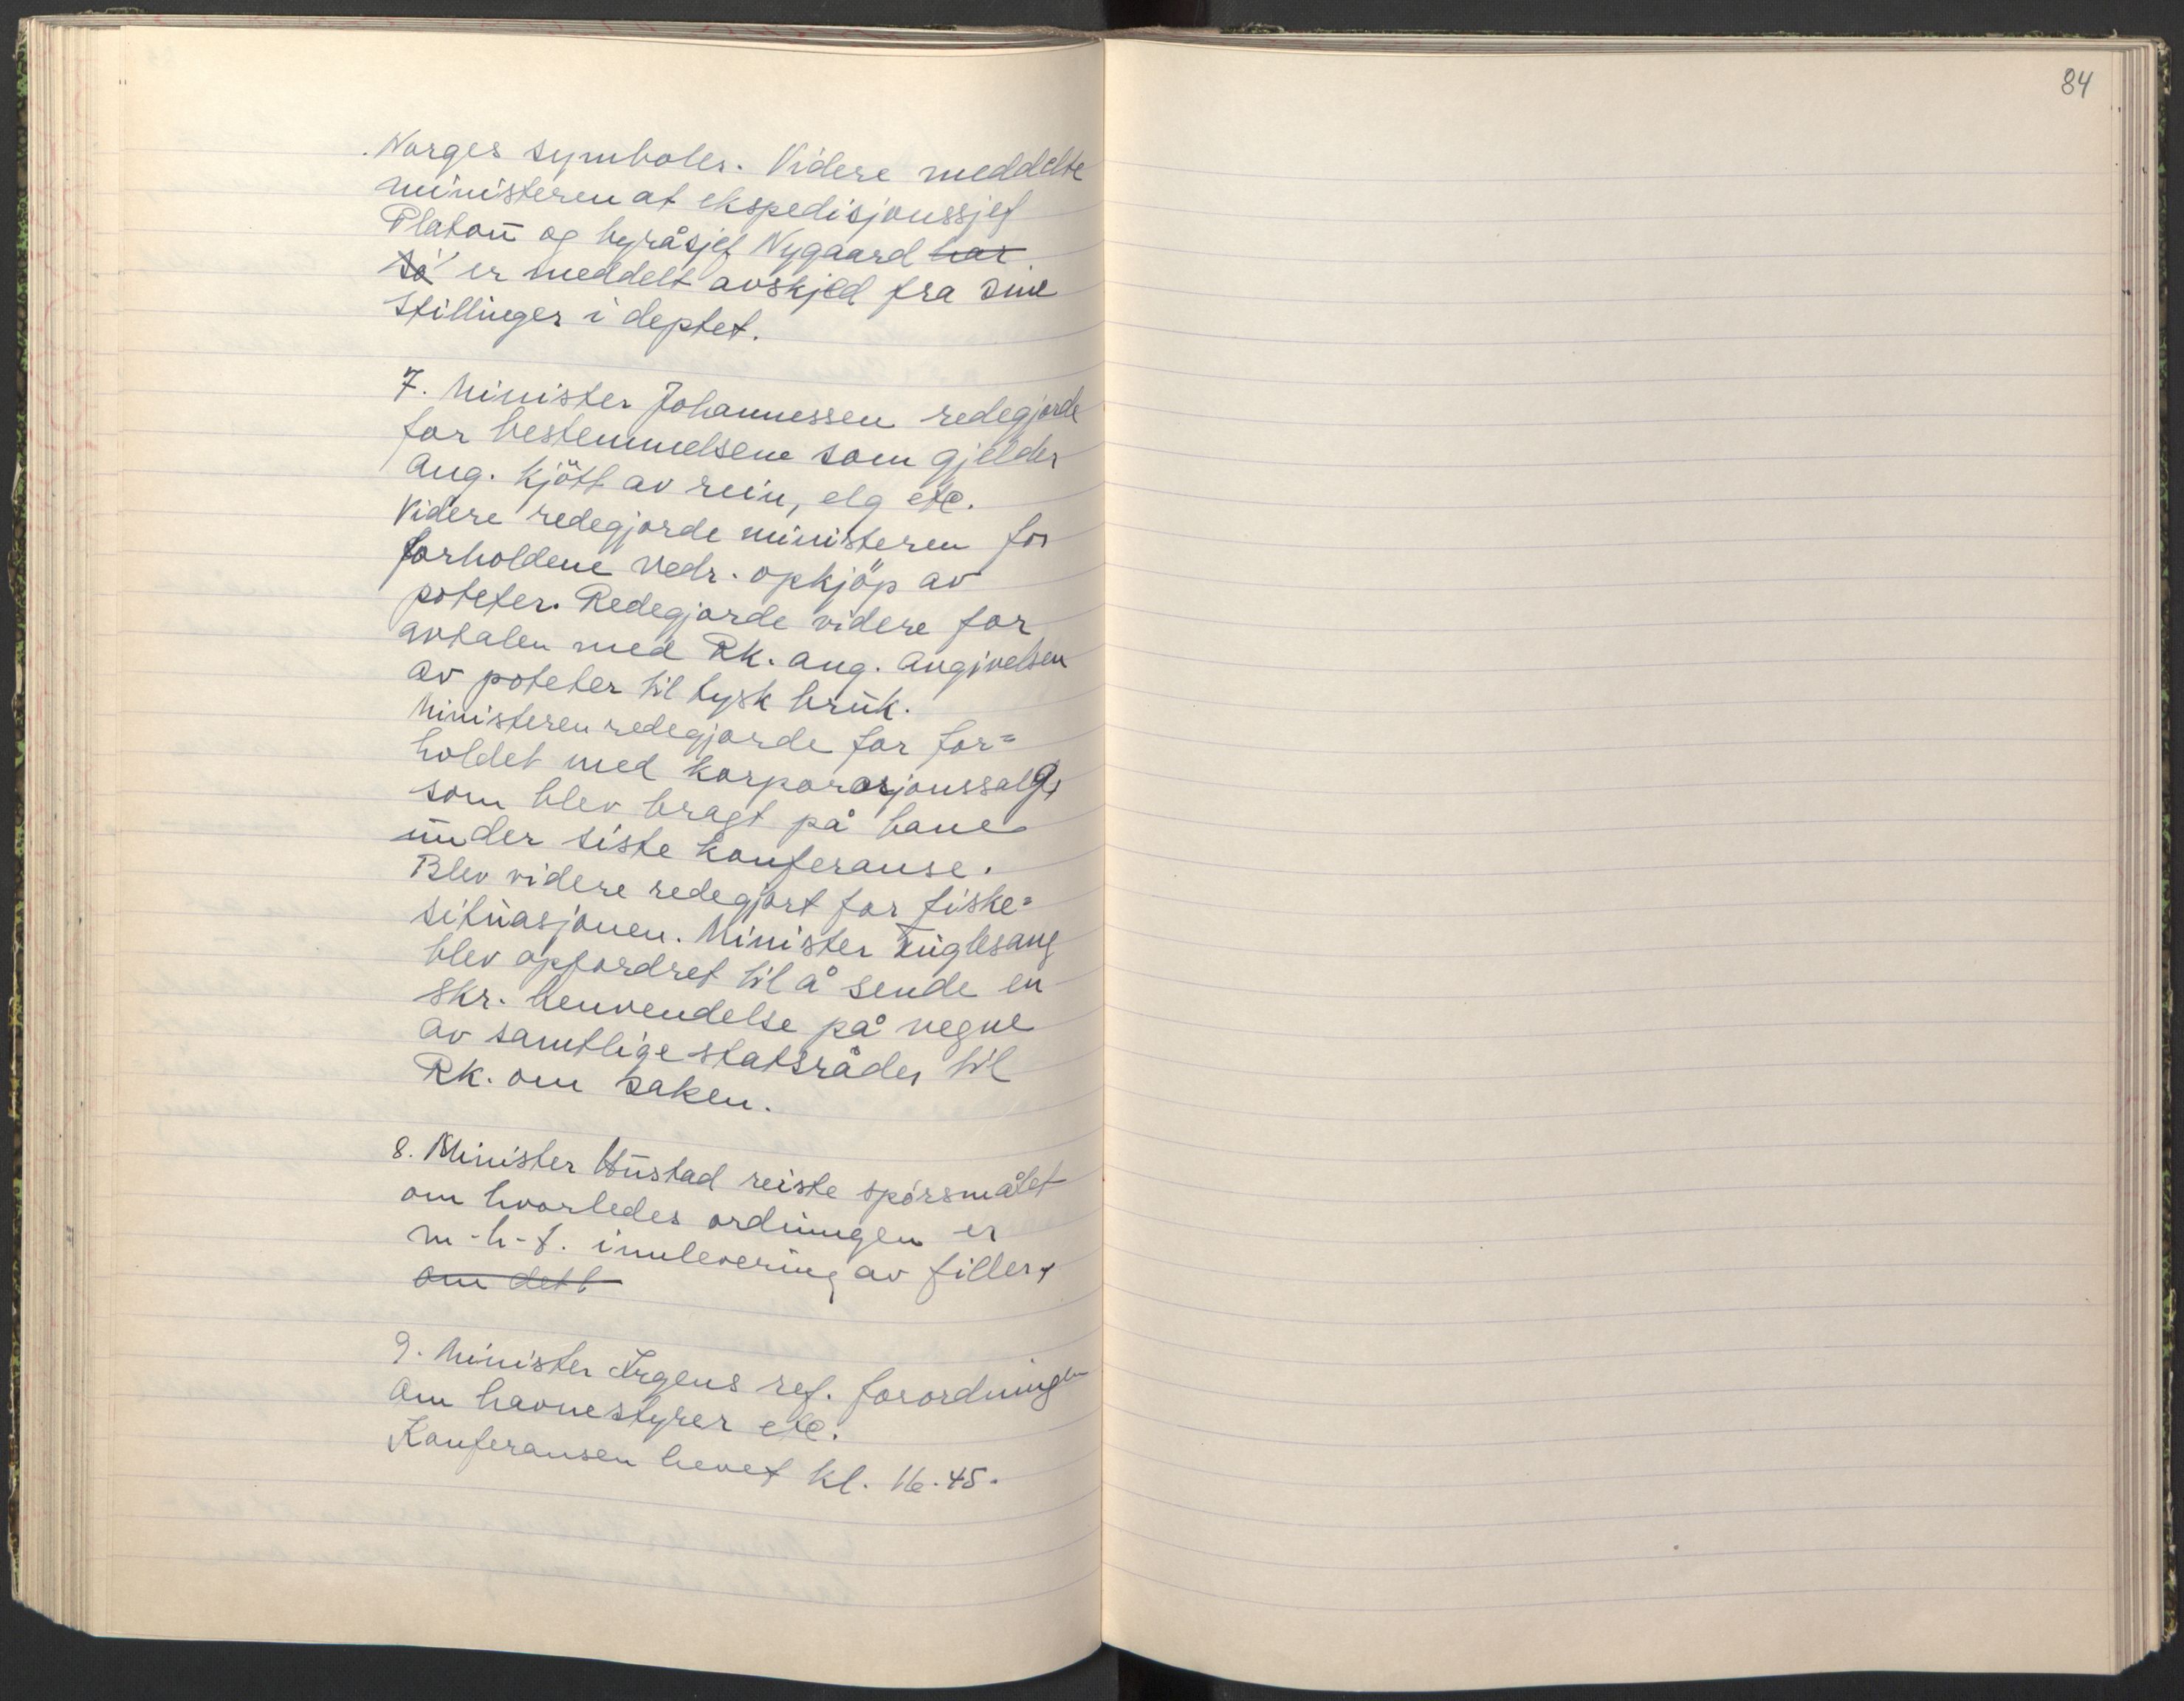 84
Norges symboler. Videre meddelte
ministeren at ekspedisjonssjef
Platou og byråsjef Nygaard har
så er meddelt avskjed fra sine
stillinger i deptet.
7. Minister Johannessen redegjorde
for bestemmelsene som gjelder
ang. kjött av rein, elg etc.
Videre redegjorde ministeren for
forholdene vedr. opkjöp av
poteter. Redegjorde videre for
avtalen med Rk. ang. avgivelsen
av poteter til tysk bruk.
Ministeren redegjorde for for=
holdet med korporasjonssalg,
som blev bragt på bane
under siste konferanse.
Blev videre redegjort for fiske=
situasjonen. Minister Fuglesang
blev opfordret til å sende en
skr. henvendelse på vegne
av samtlige statsråder til
Rk. om saken.
8. Minister Hustad reiste spörsmålet
om hvorledes ordningen er
m-h-t. innlevering av filler,
om dett
9. Minister Irgens ref. forordningen
om havnestyrer etc.
Konferansen hevet kl. 16.45.